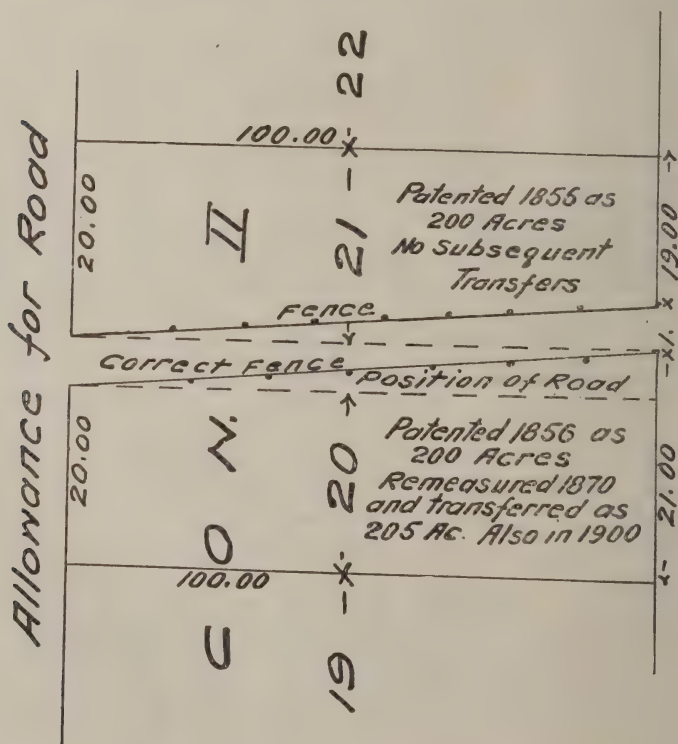 Allowance for Road
22
100.00
20.00
II
21
Patented 1855 as
200 Acres
No Subsequent
Transfers
19.00
Fence
1.
Correct Fence Position of Road
20.00
CON.
20
Patented 1856 as
200 Acres
Remeasured 1870
and transferred as
205 Ac. Also in 1900
21.00
100.00
19